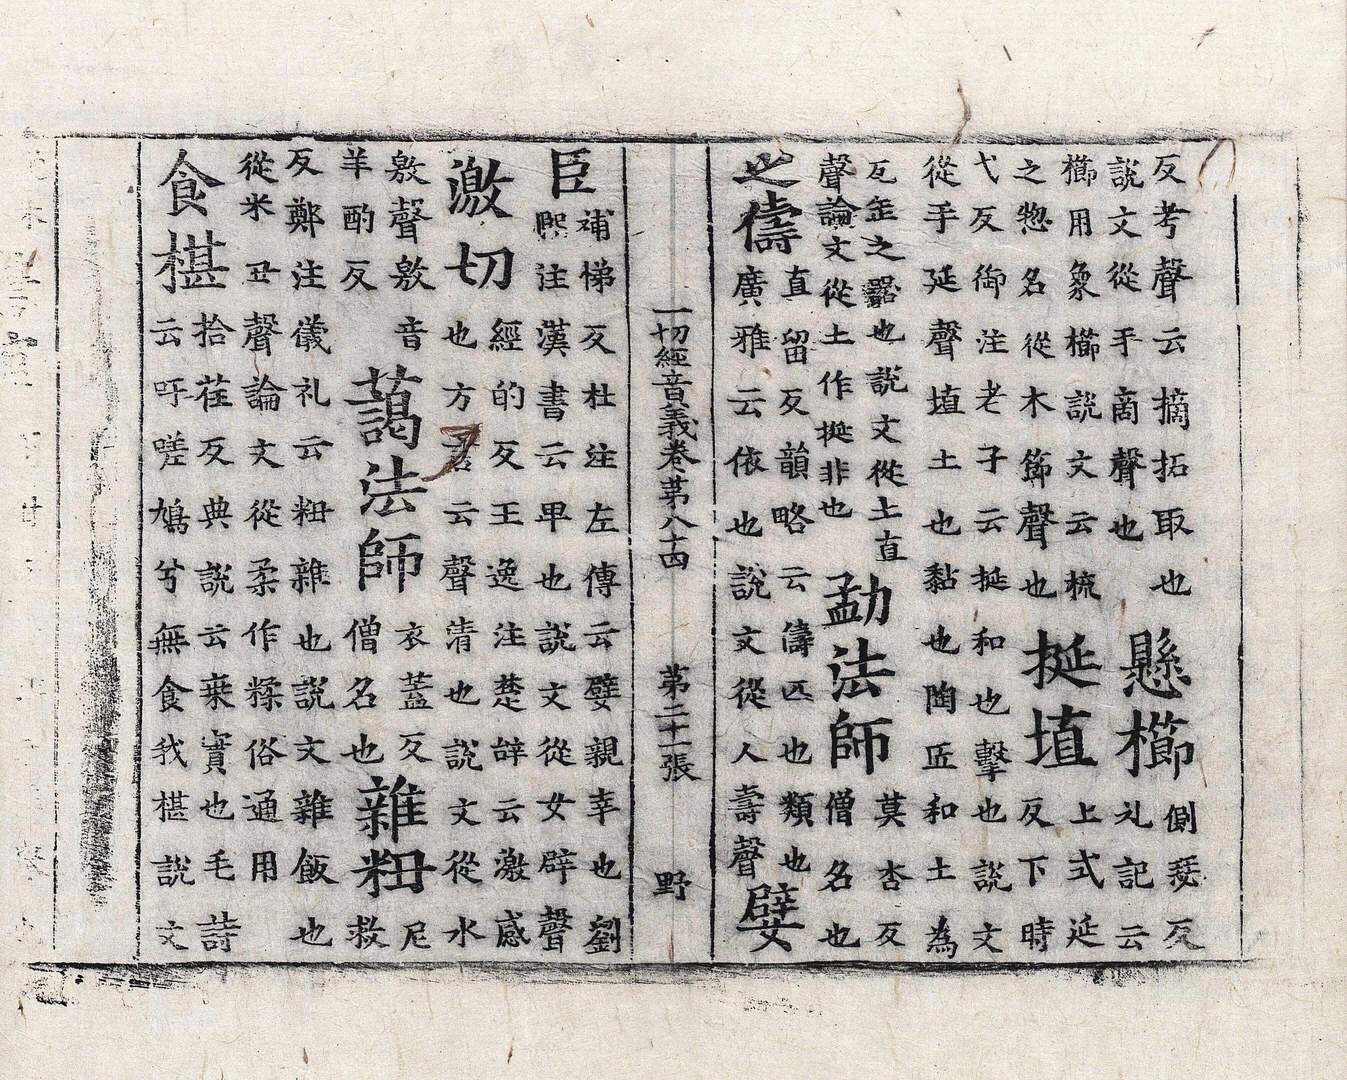 反考聲云摘拓取也
說文從手啇聲也
懸櫛
側瑟反
礼記云
櫛用象櫛說文云梳
之惣名從木節聲也
挻埴
上式延
反下時
弋反御注老子云挻和也擊也說文
從手延聲埴土也黏也陶匠和土為
瓦缶之器也說文從土直
聲論文從土作挻非也
勐法師
莫杏反
僧名也
之儔
直留反韻略云儔匹也類也
廣雅云依也說文從人壽聲
嬖
一切經音義卷苐八十四 第二十一張 野
臣
補悌反杜注左傳云嬖親幸也劉
熙注漢書云甲也說文從女辟聲
激切
經的反王逸注楚辝云激感
也方言云聲清也說文從水
敫聲敫音
羊酌反
藹法師
衣蓋反
僧名也
雜粈
尼
救
反鄭注儀礼云粈雜也說文雜飯也
從米丑聲論文從柔作糅俗通用
食椹
拾荏反典說云桒實也毛詩
云吁嗟鳩兮無食我椹說文